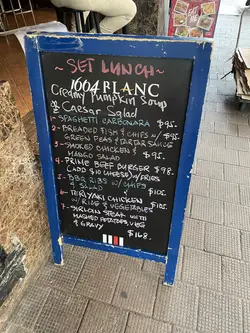 ~ SET LUNCH ~
1664 BLANC
Creamy Pumpkin Soup
& Caesar Salad
1- SPAGHETTI CARBONARA $95.
2- BREADED FISH & CHIPS w/
GREEN PEAS & TARTAR SAUCE $95.
3- SMOKED CHICKEN & $95.
MANGO SALAD
4- PRIME BEEF BURGER $98.
(ADD $10 CHEESE) w/FRIES
5- BBQ RIBS w/ CHIPS
& SALAD $105.
6- TERIYAKI CHICKEN
w/ RICE & VEGETABLES $105.
7- SIRLOIN STEAK WITH
MASHED POTATOES, VEG
& GRAVY $168.